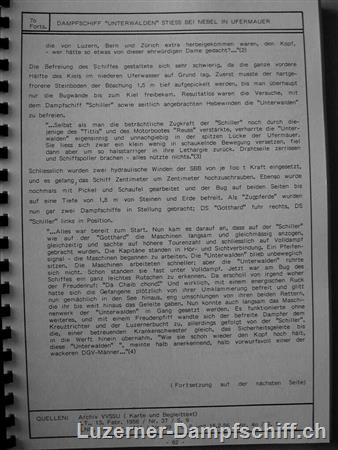 To
Forts.
DAMPFSCHIFF "UNTERWALDEN" STIESS BEI NEBEL IN UFERMAUER
die von Luzern, Bern und Zürich extra herbeigekommen waren, den Kopf,
- wer hätte so etwas von dieser ehrwürdigen Dame gedacht?..."(2)
Die Befreiung des Schiffes gestaltete sich sehr schwierig, da die ganze vordere
Hälfte des Kiels im niederen Uferwasser auf Grund lag. Zuerst musste der hartge-
frorene Steinboden der Böschung 1,5 m tief aufgepickelt werden, bis man überhaupt
nur die Bugwände bis zum Kiel freibekam. Resultatlos waren die Versuche, mit
dem Dampfschiff "Schiller" sowie seitlich angebrachten Hebewinden die "Unterwalden"
zu befreien.
"...Selbst als man die beträchtliche Zugkraft der "Schiller" noch durch die-
jenige des "Titlis" und des Motorbootes "Reuss" verstärkte, verharrte die "Unter-
walden" eigensinnig und unnachgiebig in der spitzen Lücke der Ufermauer.
Sie liess sich zwar ein klein wenig in schaukelnde Bewegung versetzen, fiel
dann aber um so halsstarriger in ihre Lethargie zurück. Drahtseile zerrissen
und Schiffspoller brachen - alles nützte nichts."(3)
Schliesslich wurden zwei hydraulische Winden der SBB von je 100 t Kraft eingesetzt,
und es gelang das Schiff Zentimeter um Zentimeter hochzuschrauben. Ebenso wurde
nochmals mit Pickel und Schaufel gearbeitet und der Bug auf beiden Seiten bis
auf eine Tiefe von 1,8 m von Steinen und Erde befreit. Als "Zugpferde" wurden
nun gar zwei Dampfschiffe in Stellung gebracht; DS "Gotthard" fuhr rechts, DS
"Schiller" links in Position.
"...Alles war bereit zum Start. Nun kam es darauf an, dass auf der "Schiller"
wie auf der "Gotthard" die Maschinen langsam und gleichmässig anzogen,
gleichzeitig und sachte auf höhere Tourenzahl und schliesslich auf Volldampf
gebracht wurden. Die Kapitäne standen in Hör- und Sichtverbindung. Ein Pfeifen-
signal - die Maschinen begannen zu arbeiten. Die "Unterwalden" blieb unbeweglich
sitzen. Die Maschinen arbeiteten schneller; aber die "Unterwalden" rührte
sich nicht. Schon standen sie fast unter Volldampf. Jetzt war am Bug des
Schiffes ein ganz leichtes Rutschen zu erkennen. Da erscholl von irgend woher
der Freudenruf: "Da Chaib chond!" Und wirklich, mit einem energischen Ruck
hatte sich die Gefangene plötzlich von ihrer Umklammerung befreit und glitt
nun gemächlich in den See hinaus, eng umschlungen von ihren beiden Rettern,
die ihr bis weit hinaus das Geleite gaben. Nun konnte auch langsam das Maschi-
nenwerk der "Unterwalden" in Gang gesetzt werden. Es funktionierte ohne
weiteres, und mit einem Freudenpfiff wandte sich der befreite Dampfer dem
Kreuztrichter und der Luzernerbucht zu, allerdings gefolgt von der "Schiller",
die, einer betreuenden Krankenschwester gleich, das Sicherheitsgeleite bis
in die Werft hinein übernahm. "Wie sie schon wieder den Kopf hoch hält,
diese "Unterwalden" ", meinte halb anerkennend, halb vorwurfsvoll einer der
wackeren DGV-Männer..."(4)
(Fortsetzung auf der nächsten Seite)
QUELLEN:
Archiv VVSSU ( Karte und Begleittext)
15. Febr. 1956 / Nr. 37 / S. 9
- 62 -
Luzerner-Dampfschiff.ch